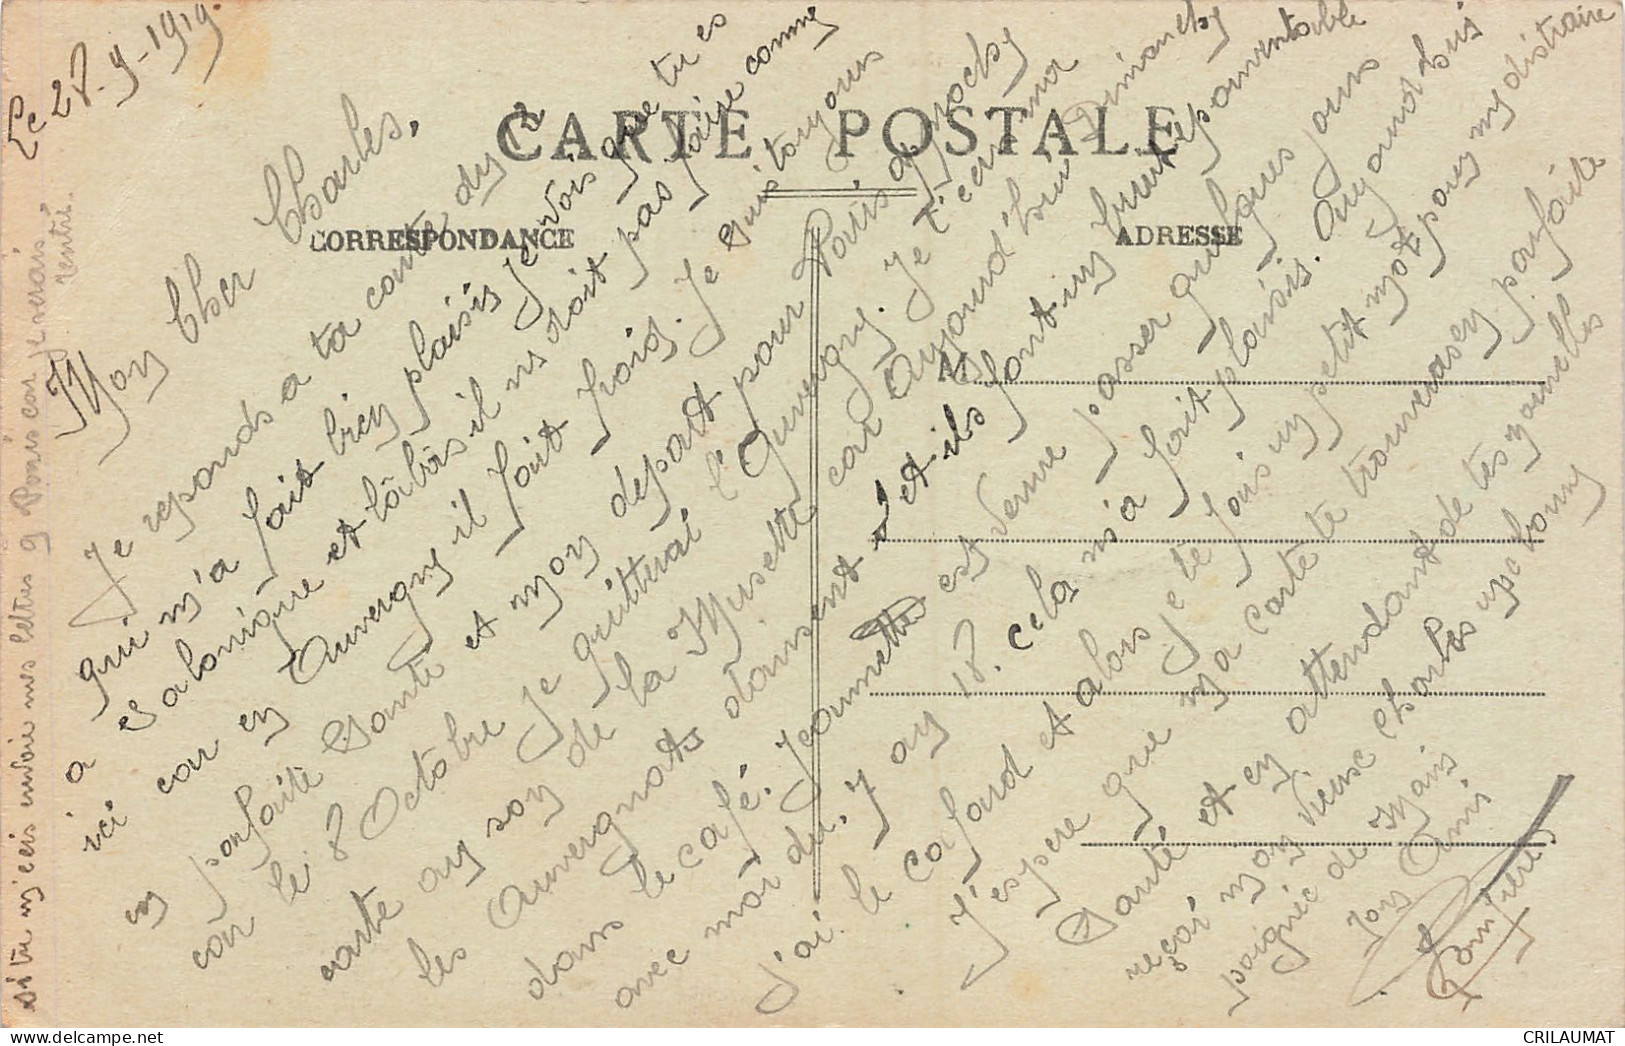 Le 28-9-1919.
CARTE POSTALE
CORRESPONDANCE
ADRESSE
M
Mon Cher Charles,
Je reponds a ta carte du 2
qui m'a fait bien plaisir Je vois que tu es
a Salonique et làbas il ne doit pas faire comme
ici car en Auvergne il fait froid. Je suis toujours
en parfaite Santé et mon depart pour Paris approche
car le 8 Octobre Je quitterai l'Auvergne. Je t'ecris ma
carte au son de la Musette car Aujourd'hui Dimanche
les Auvergnats dansent et ils font un bruit epouventable
dans le café. Jeannette est venue passer quelques jours
avec moi du 7 au 18. cela m'a fait plaisir. Aujourd'hui
j'ai le cafard et alors je te fais un petit mot pour me distraire
J'espere que ma carte te trouverasen parfaite
Santé et en attendant de tes nouvelles
reçoi mon vieux Charles une bonne
poignée de Main
Ton Ami
si tu m'ecris envoie mes lettres a Paris car je serais
rentré.
CRILAUMAT